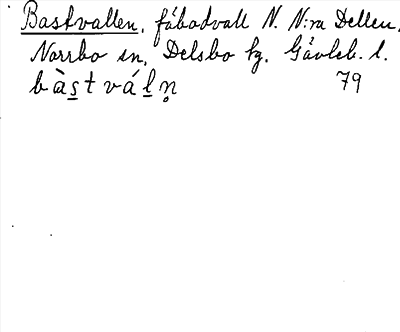 Bastvallen, fäbodvall N. N:ra Dellen,
Norrbo sn, Delsbo tg. Gävleb. l.
bàs̲tvál̲n̥ 79